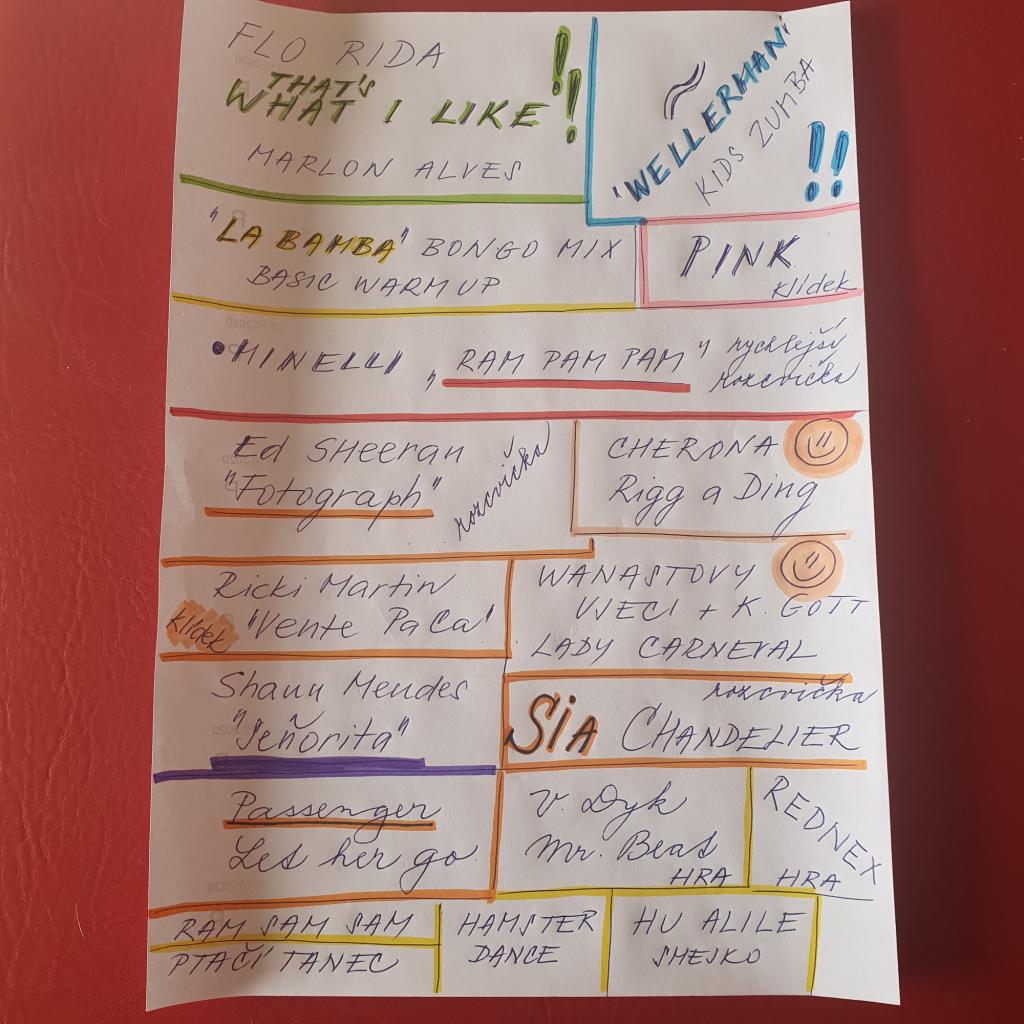 FLO RIDA
THAT'S
WHAT I LIKE !!
MARLON ALVES
"WELLERMAN"
KIDS ZUMBA
!!
"LA BAMBA" BONGO MIX
BASIC WARM UP
PINK
klídek
• MINELLI „RAM PAM PAM" rychlejší
rozcvička
Ed SHeeran
"Fotograph"
rozcvička
CHERONA
Rigg a Ding
Ricki Martin
klídek "Vente PaCa"
WANASTOVY
VJECI + K. GOTT
LADY CARNEVAL
Shawn Mendes
"Señorita"
rozcvička
SiA CHANDELIER
Passenger
Let her go
V. Dyk
Mr. Beat
HRA
REDNEX
HRA
RAM SAM SAM
PTAČÍ TANEC
HAMSTER
DANCE
HU ALILE
SHEJKO